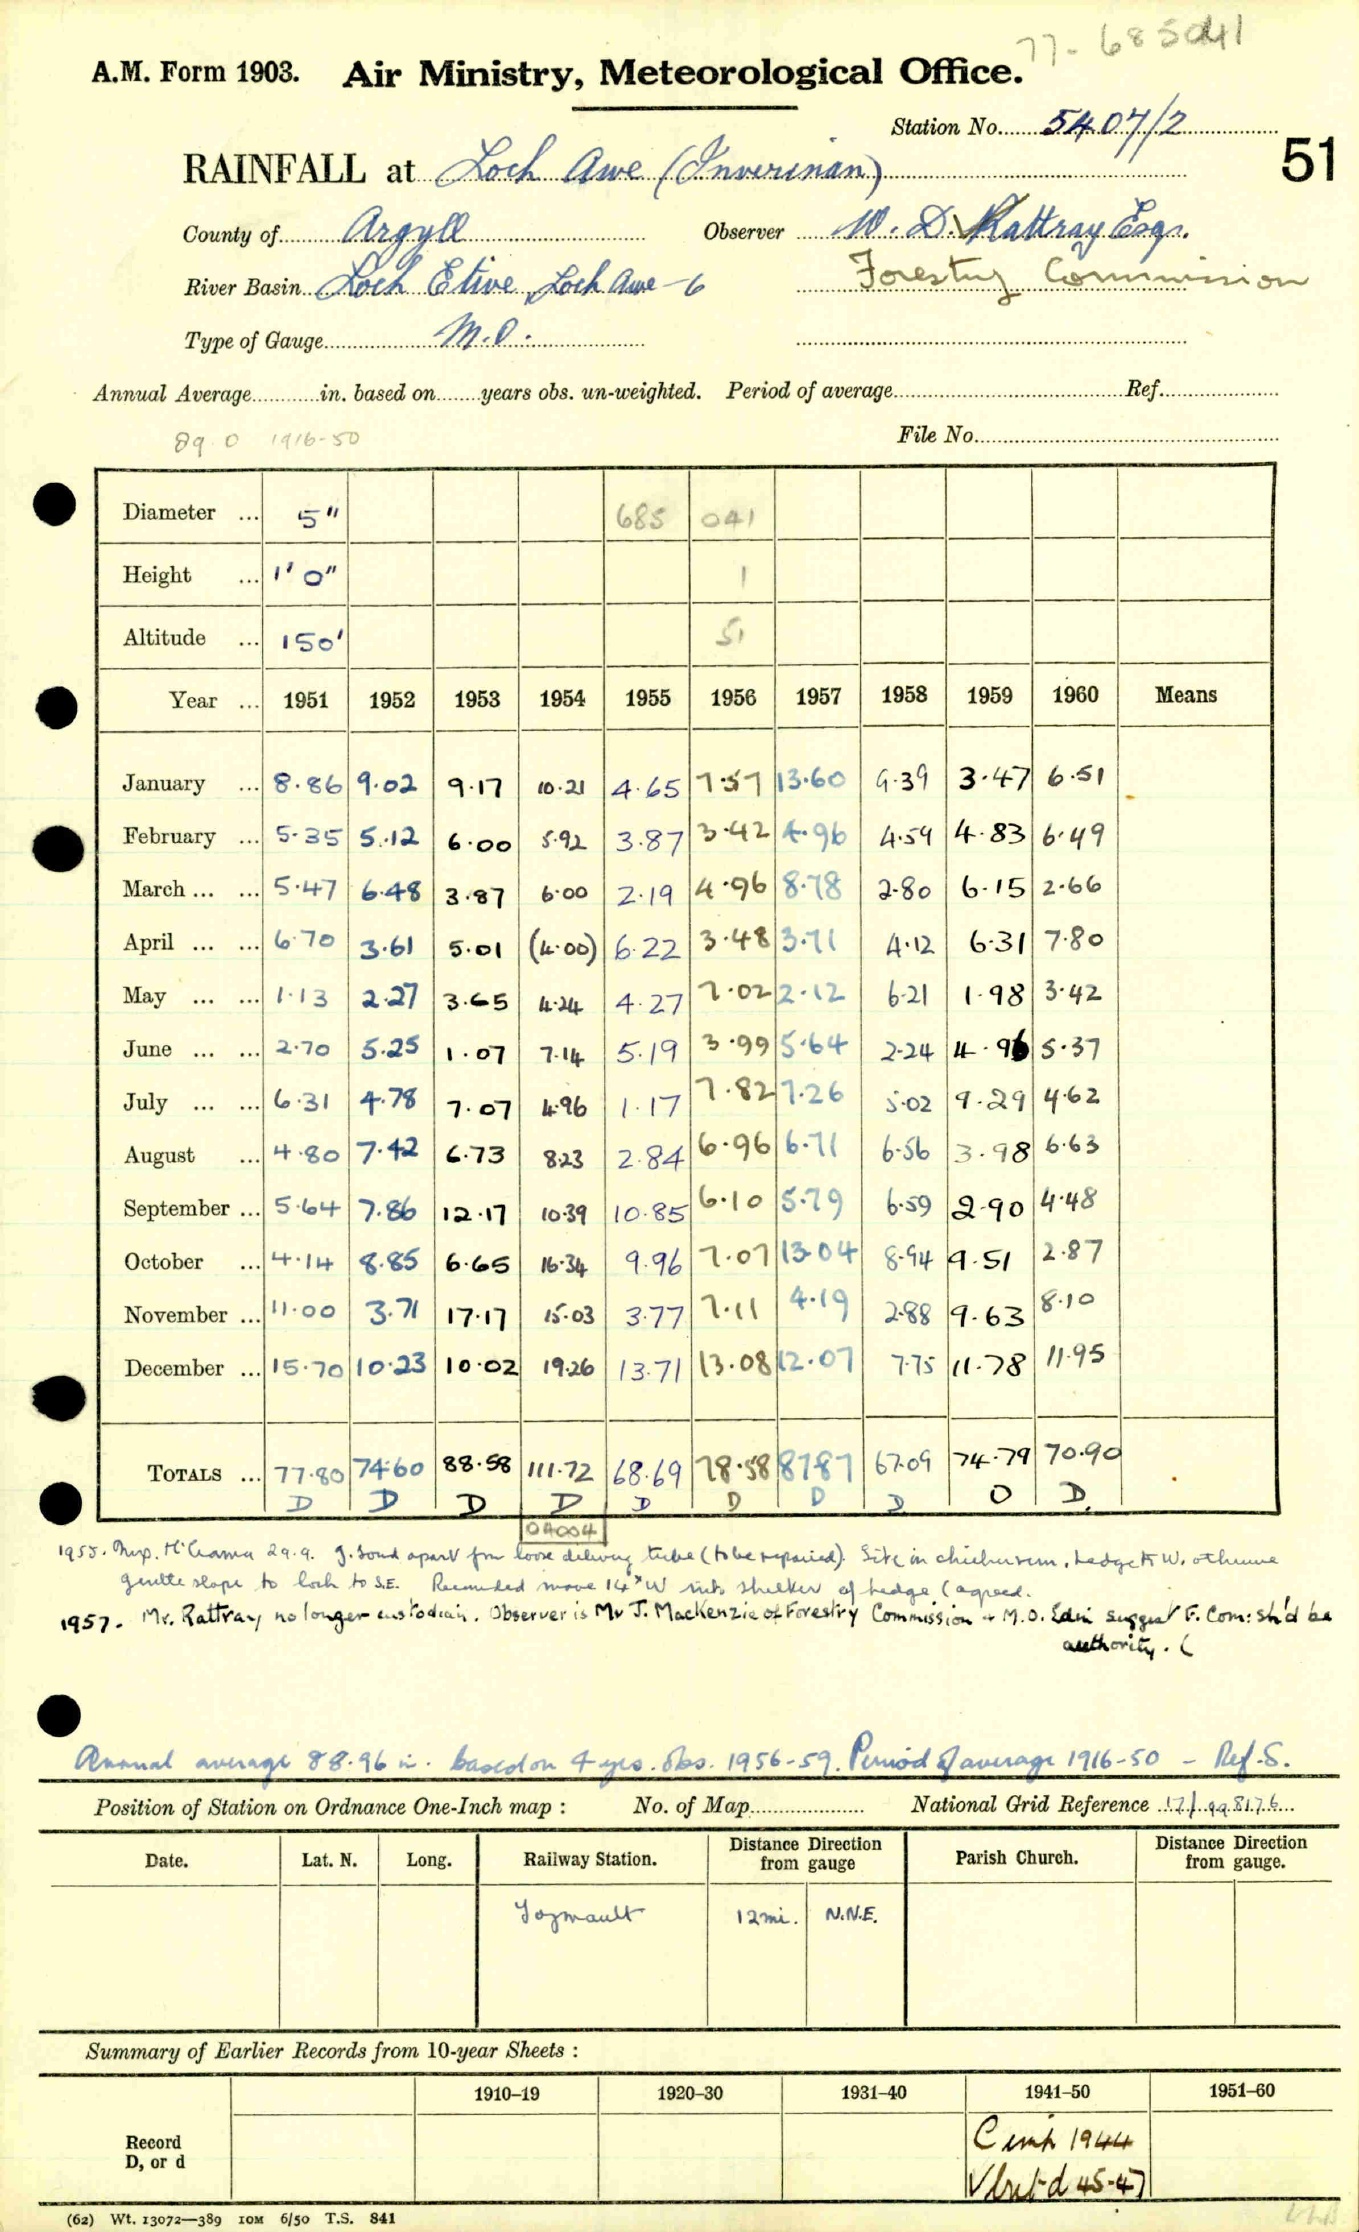 77-685041
A.M. Form 1903. Air Ministry, Meteorological Office.
Station No. 5407/2
51
RAINFALL at Loch Awe (Inverinan)
County of Argyll Observer W. D. Rattray Esq.
River Basin Loch Etive, Loch Awe-6 Forestry Commission
Type of Gauge M.O.
Annual Average in. based on years obs. un-weighted. Period of average Ref.
89.0 1916-50 File No.
Diameter ... 5" 685 041
Height ... 1' 0" 1
Altitude ... 150' 51
Year ... 1951 1952 1953 1954 1955 1956 1957 1958 1959 1960 Means
January ... 8.86 9.02 9.17 10.21 4.65 7.57 13.60 9.39 3.47 6.51
February ... 5.35 5.12 6.00 5.92 3.87 3.42 4.96 4.59 4.83 6.49
March ... ... 5.47 6.48 3.87 6.00 2.19 4.96 8.78 2.80 6.15 2.66
April ... ... 6.70 3.61 5.01 (4.00) 6.22 3.48 3.71 4.12 6.31 7.80
May ... ... 1.13 2.27 3.65 4.24 4.27 7.02 2.12 6.21 1.98 3.42
June ... ... 2.70 5.25 1.07 7.14 5.19 3.99 5.64 2.24 4.96 5.37
July ... ... 6.31 4.78 7.07 4.96 1.17 7.82 7.26 5.02 9.29 4.62
August ... 4.80 7.42 6.73 8.23 2.84 6.96 6.71 6.56 3.98 6.63
September ... 5.64 7.86 12.17 10.39 10.85 6.10 5.79 6.59 2.90 4.48
October ... 4.14 8.85 6.65 16.34 9.96 7.07 13.04 8.94 9.51 2.87
November ... 11.00 3.71 17.17 15.03 3.77 7.11 4.19 2.88 9.63 8.10
December ... 15.70 10.23 10.02 19.26 13.71 13.08 12.07 7.75 11.78 11.95
TOTALS ... 77.80 74.60 88.58 111.72 68.69 78.58 87.87 67.09 74.79 70.90
D D D D D D D D D D.
04004
1955. Insp. 29.9. g. sound apart from loose delivery tube (to be repaired). Site in chicken run, hedge to W. otherwise
gentle slope to loch to S.E. move 14' W into shelter of hedge (agreed.
1957. Mr. Rattray no longer custodian. Observer is Mr J. MacKenzie of Forestry Commission + M.O. Edin suggest F. Com: sh'd be
authority. (
Annual average 88.96 in. based on 4 yrs. obs. 1956-59. Period of average 1916-50 - Ref. S.
Position of Station on Ordnance One-Inch map : No. of Map National Grid Reference 17/998176
Date. Lat. N. Long. Railway Station. Distance from gauge Direction Parish Church. Distance from gauge. Direction
12mi. N.N.E.
Summary of Earlier Records from 10-year Sheets :
1910–19 1920–30 1931–40 1941–50 1951–60
Record
D, or d
1944
45-47
(62) Wt. 13072—389 10M 6/50 T.S. 841